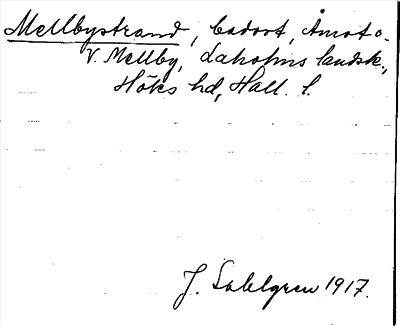 Mellbystrand, badort, Åmot o.
V. Mellby, Laholms landsk.,
Höks hd, Hall. l.
J. Sahlgren 1917.